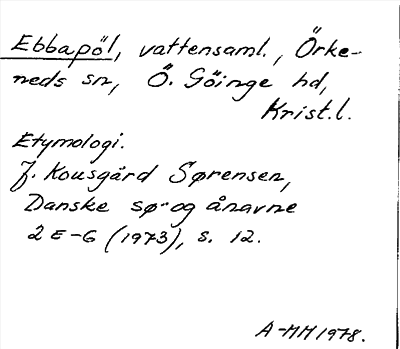 Ebbapöl, vattensaml., Örke-
neds sn, Ö. Göinge hd,
Krist.l.
Etymologi.
J. Kousgård Sørensen,
Danske sø- og ånavne
2 E-G (1973), s. 12.
A-MH 1978.